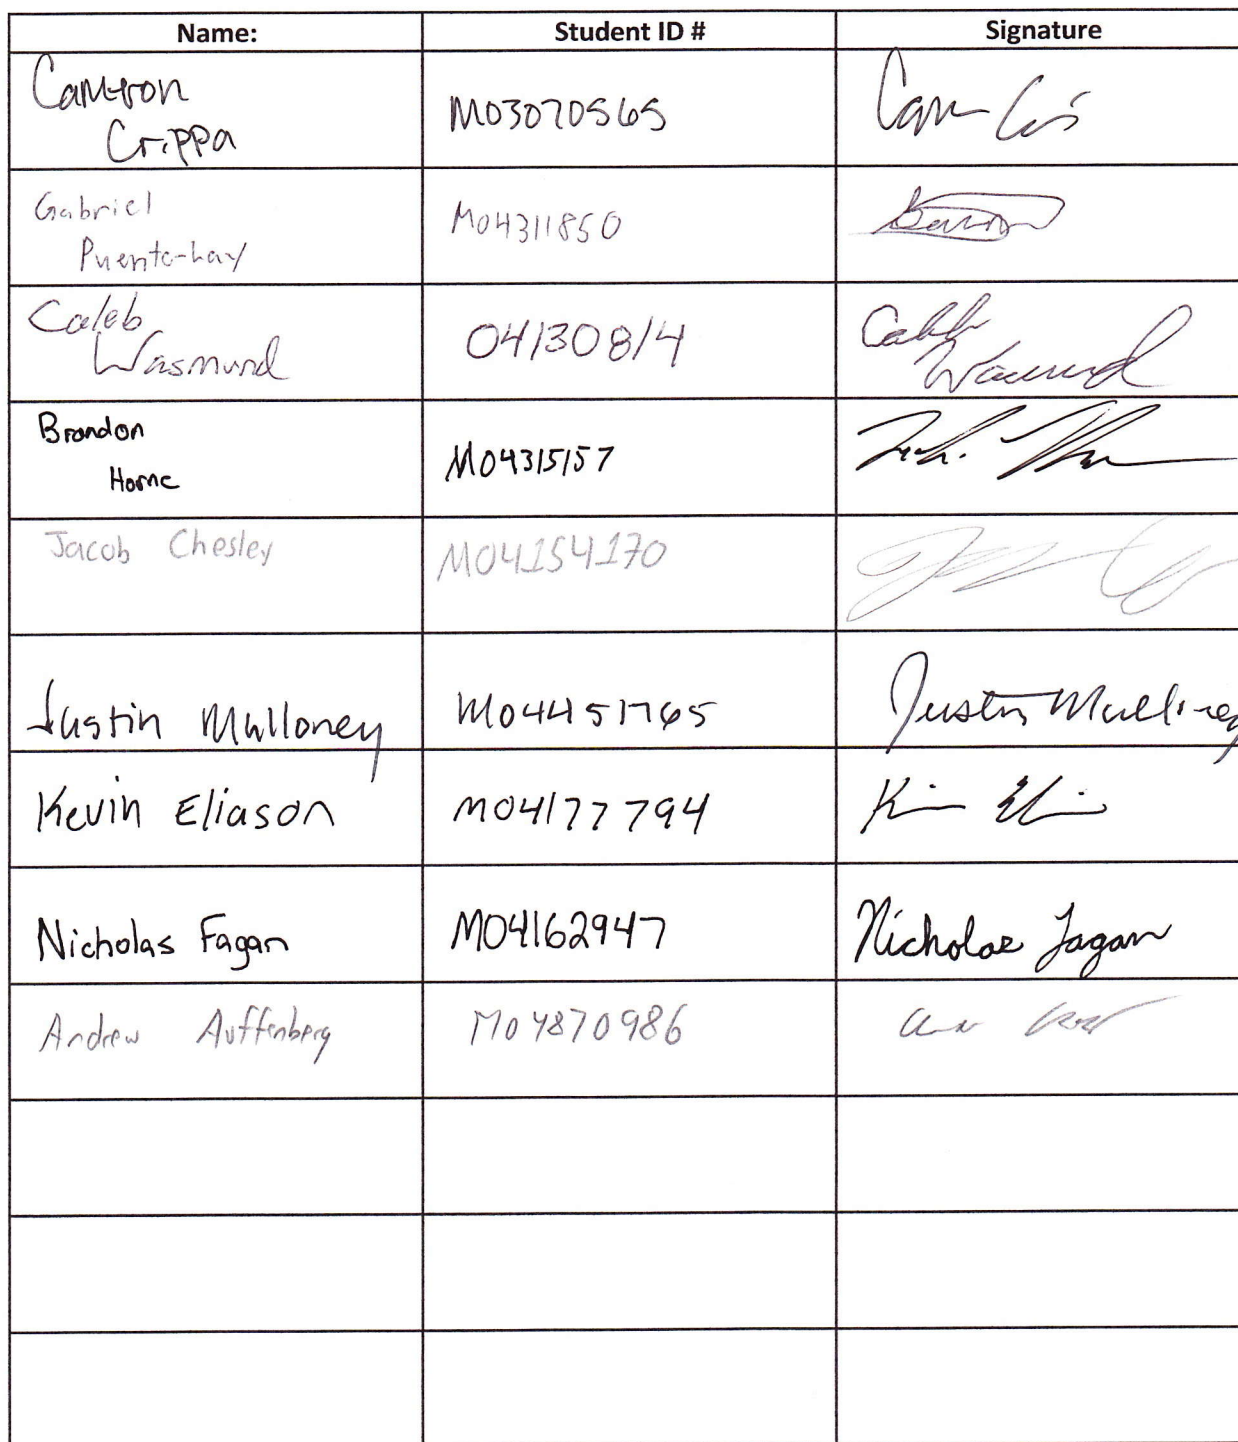 Name: Student ID # Signature
Cameron
Crippa
M03070565
Gabriel
Puente-Lay
M04311850
Caleb
Wasmund
04130814
Caleb
Wasmund
Brandon
Horne
M04315157
Jacob Chesley M04154170
Justin Mulloney M04451765 Justin Mulloney
Kevin Eliason M04177794
Nicholas Fagan M04162947 Nicholas Fagan
Andrew Auffenberg M04870986